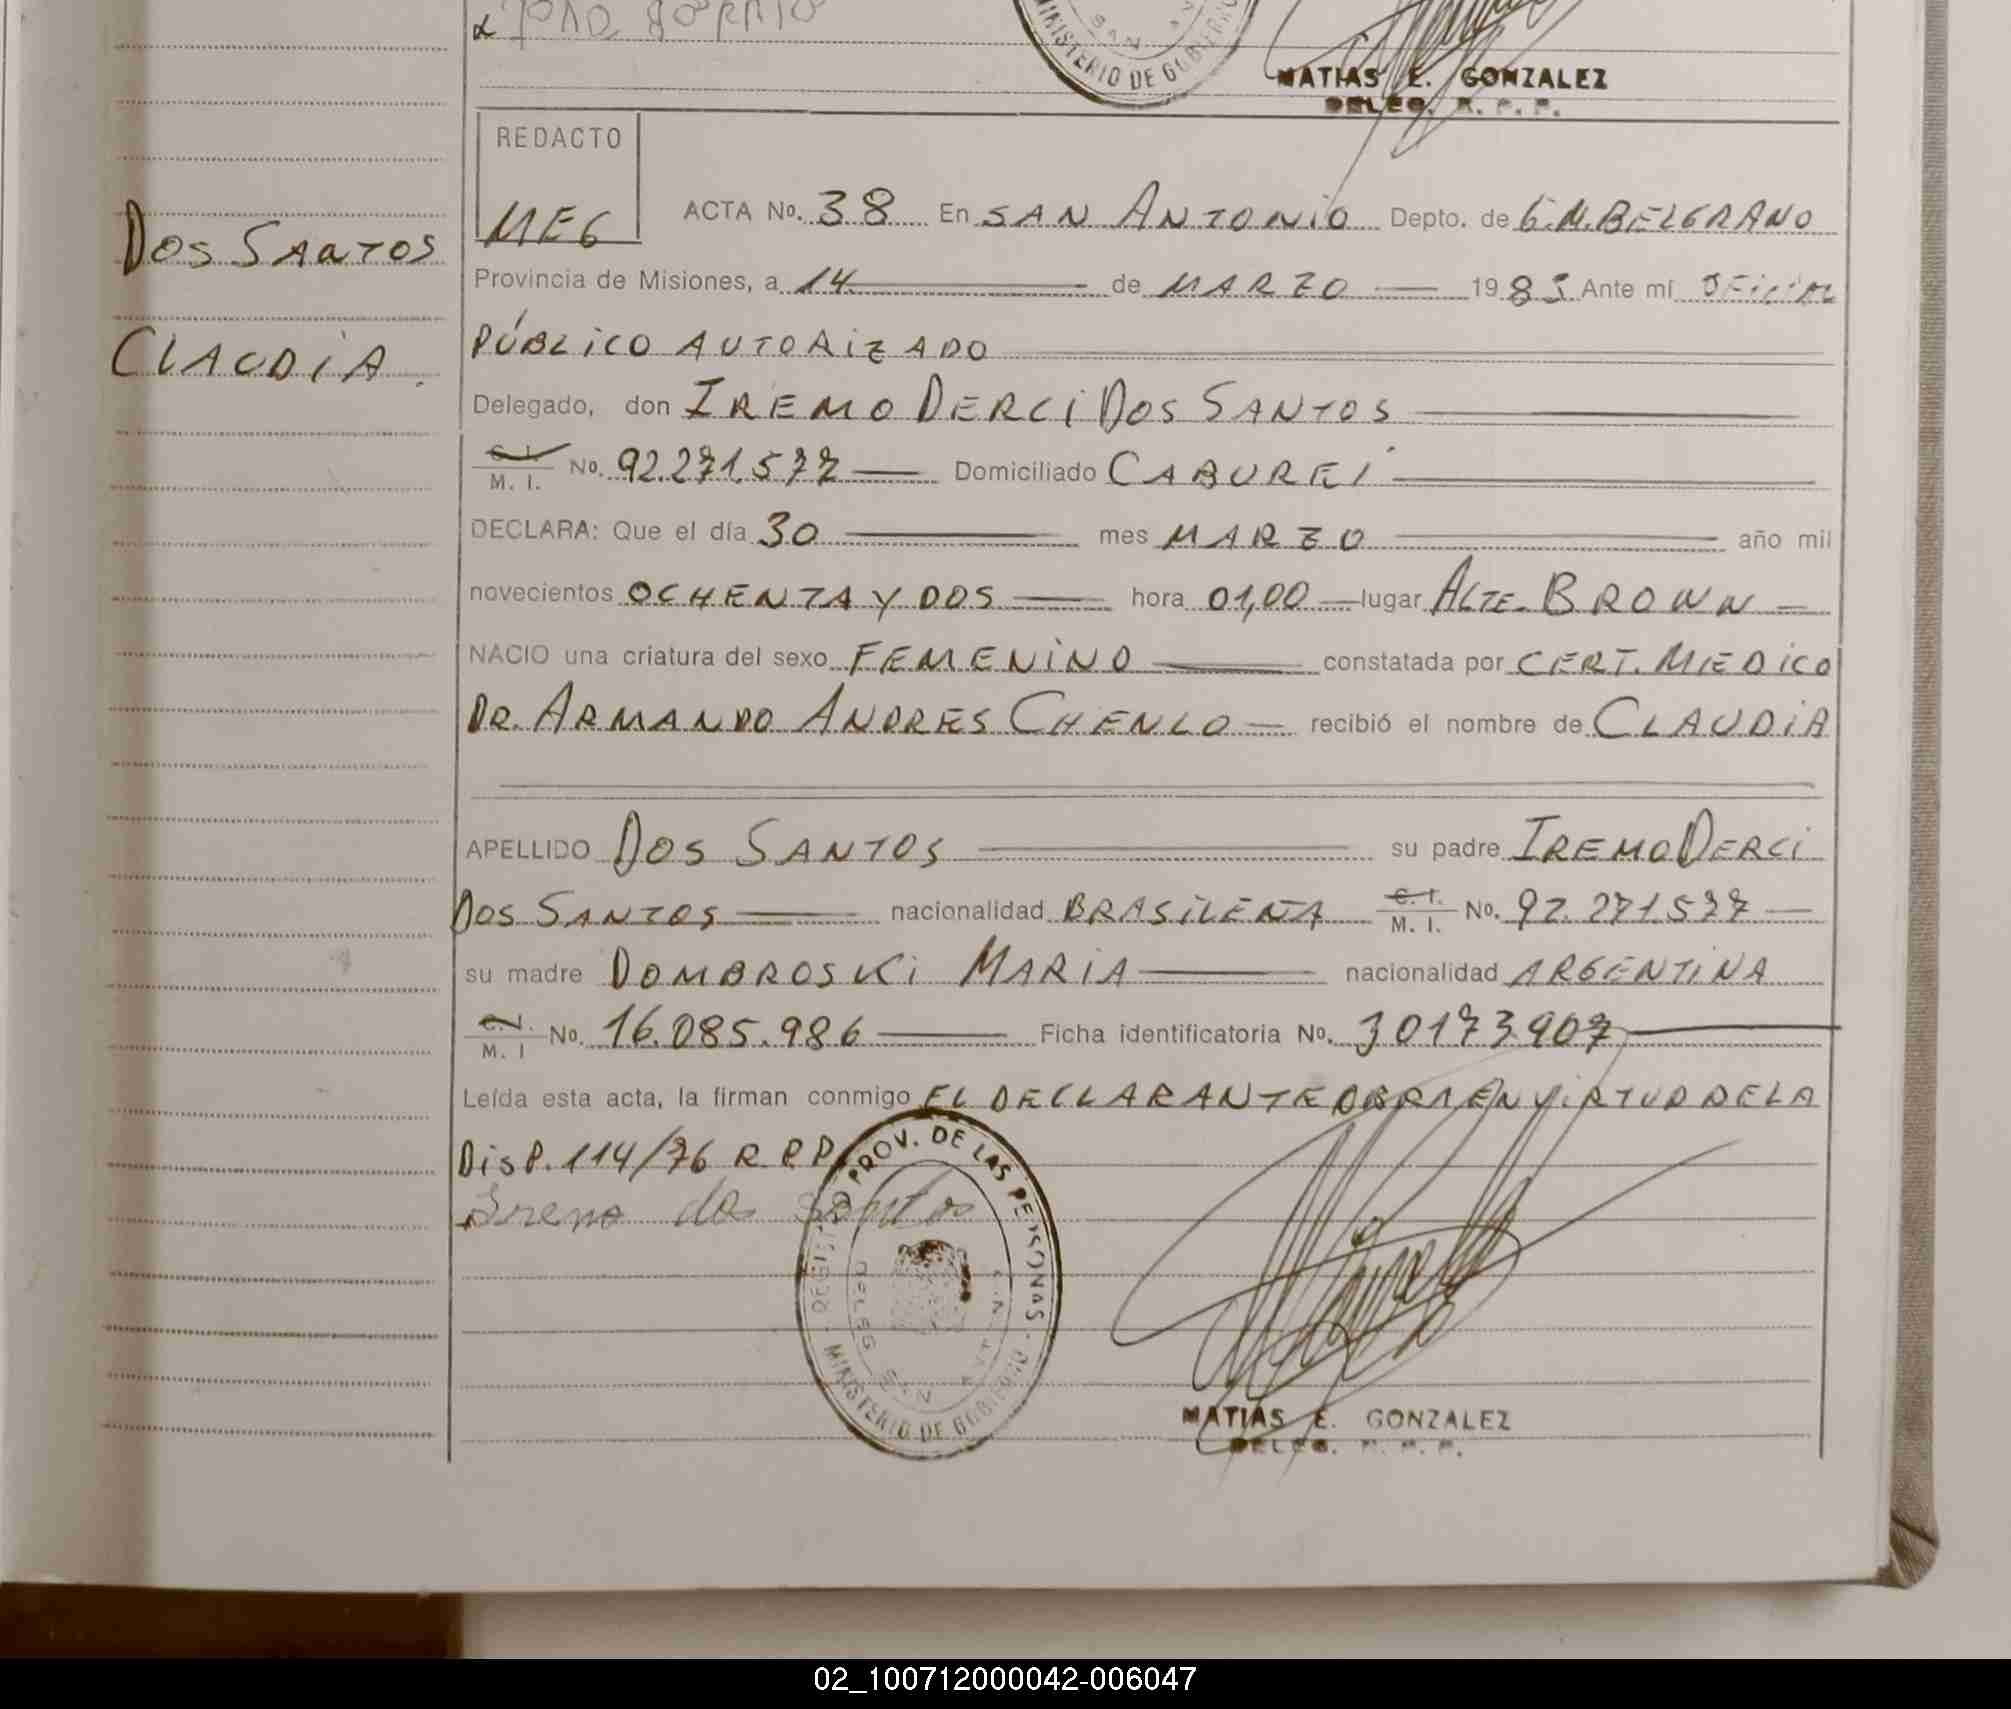 MINISTERIO DE GOBIERNO
SAN
MATIAS E. GONZALEZ
DELEG. R. P. P.
REDACTO
MEG
DOS SANTOS
CLAUDIA.
ACTA No. 38 En SAN ANTONIO Depto. de G.M.BELGRANO
Provincia de Misiones, a 14 de MARZO 1983 Ante mí OFICIAL
PÚBLICO AUTORIZADO
Delegado, don IREMO DERCI DOS SANTOS
C. I.
M. I. No. 92.271.577 Domiciliado CABUREI
DECLARA: Que el día 30 mes MARZO año mil
novecientos OCHENTA Y DOS hora 01,00 lugar ALTE. BROWN
NACIO una criatura del sexo FEMENINO constatada por CERT. MEDICO
DR. ARMANDO ANDRES CHENLO recibió el nombre de CLAUDIA
APELLIDO DOS SANTOS su padre IREMO DERCI
DOS SANTOS nacionalidad BRASILEÑA C. I. M. I. No. 92.271.577
su madre DOMBROSKI MARIA nacionalidad ARGENTINA
C. I.
M. I No. 16.085.986 Ficha identificatoria No. 30173907
Leída esta acta, la firman conmigo EL DECLARANTE OBRA EN VIRTUD DE LA
DISP. 114/76 R.P.P.
Iremo dos santos
REGISTRO PROV. DE LAS PERSONAS
DELEG SAN ANT
MINISTERIO DE GOBIERNO
MATIAS E. GONZALEZ
DELEG. R. P. P.
02_100712000042-006047